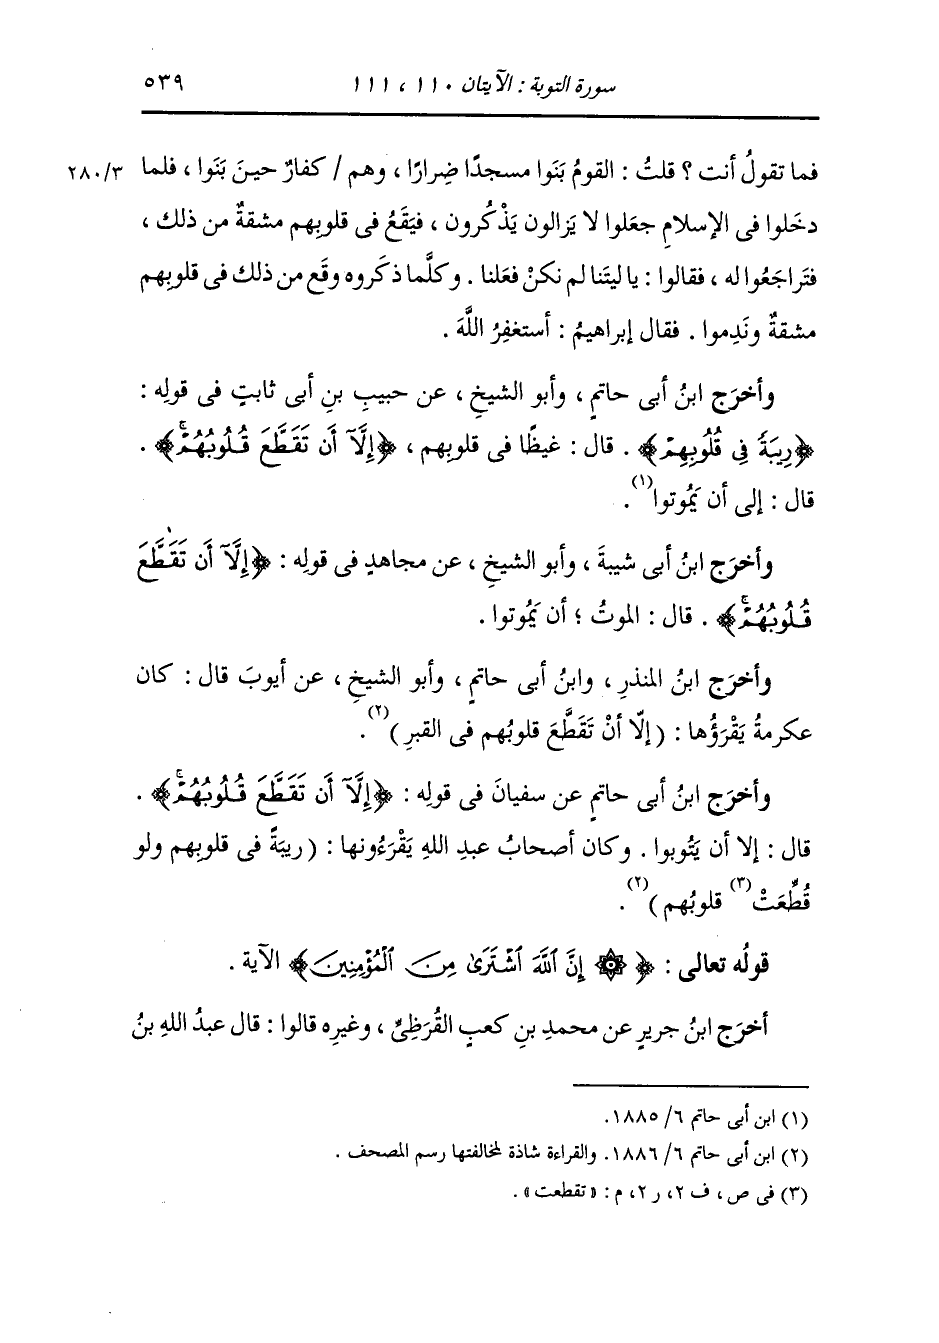 سورة التوبة : الآيتان ١١٠ ، ١١١ ٥٣٩
فما تقولُ أنت ؟ قلتُ : القومُ بَنَوا مسجدًا ضِرارًا ، وهم / كفارٌ حينَ بَنَوا ، فلما ٢٨٠/٣
دخَلوا فى الإسلامِ جعَلوا لا يَزالون يَذْكُرون ، فيَقَعُ فى قلوبِهم مشقةٌ من ذلك ،
فتَراجَعُوا له ، فقالوا : يا ليتَنا لم نكنْ فعَلنا . وكلَّما ذكَروه وقَع من ذلك فى قلوبِهم
مشقةٌ ونَدِموا . فقال إبراهيمُ : أستغفِرُ اللَّهَ .
وأخرَج ابنُ أبى حاتمٍ ، وأبو الشيخِ ، عن حبيبِ بنِ أبى ثابتٍ فى قولِه :
﴿رِيبَةً فِي قُلُوبِهِمْ﴾ . قال : غيظًا فى قلوبِهم ، ﴿إِلَّآ أَن تَقَطَّعَ قُلُوبُهُمْۗ﴾ .
قال : إلى أن يَمُوتوا(١).
وأخرَج ابنُ أبى شيبةَ ، وأبو الشيخِ ، عن مجاهدٍ فى قولِه : ﴿إِلَّآ أَن تَقَطَّعَ
قُلُوبُهُمْۗ﴾ . قال : الموتُ ؛ أن يَمُوتوا .
وأخرَج ابنُ المنذرِ ، وابنُ أبى حاتمٍ ، وأبو الشيخِ ، عن أيوبَ قال : كان
عكرمةُ يَقْرَؤُها : ( إلَّا أنْ تَقَطَّعَ قلوبُهم فى القبرِ )(٢).
وأخرَج ابنُ أبى حاتمٍ عن سفيانَ فى قولِه : ﴿إِلَّآ أَن تَقَطَّعَ قُلُوبُهُمْۗ﴾ .
قال : إلا أن يَتُوبوا . وكان أصحابُ عبدِ اللهِ يَقْرَءُونها : ( ريبَةً فى قلوبِهم ولو
قُطِّعَتْ(٣) قلوبُهم )(٢).
قولُه تعالى : ﴿ ۞ إِنَّ ٱللَّهَ ٱشْتَرَىٰ مِنَ ٱلْمُؤْمِنِينَ﴾ الآية .
أخرَج ابنُ جريرٍ عن محمدِ بنِ كعبٍ القُرَظِىِّ ، وغيرِه قالوا : قال عبدُ اللهِ بنُ
(١) ابن أبى حاتم ٦/ ١٨٨٥.
(٢) ابن أبى حاتم ٦/ ١٨٨٦. والقراءة شاذة لمخالفتها رسم المصحف .
(٣) فى ص، ف ٢، ر ٢، م : «تقطعت» .